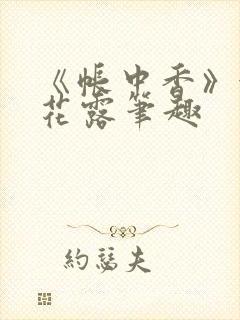 《帐中香》
花露笔趣
約瑟夫